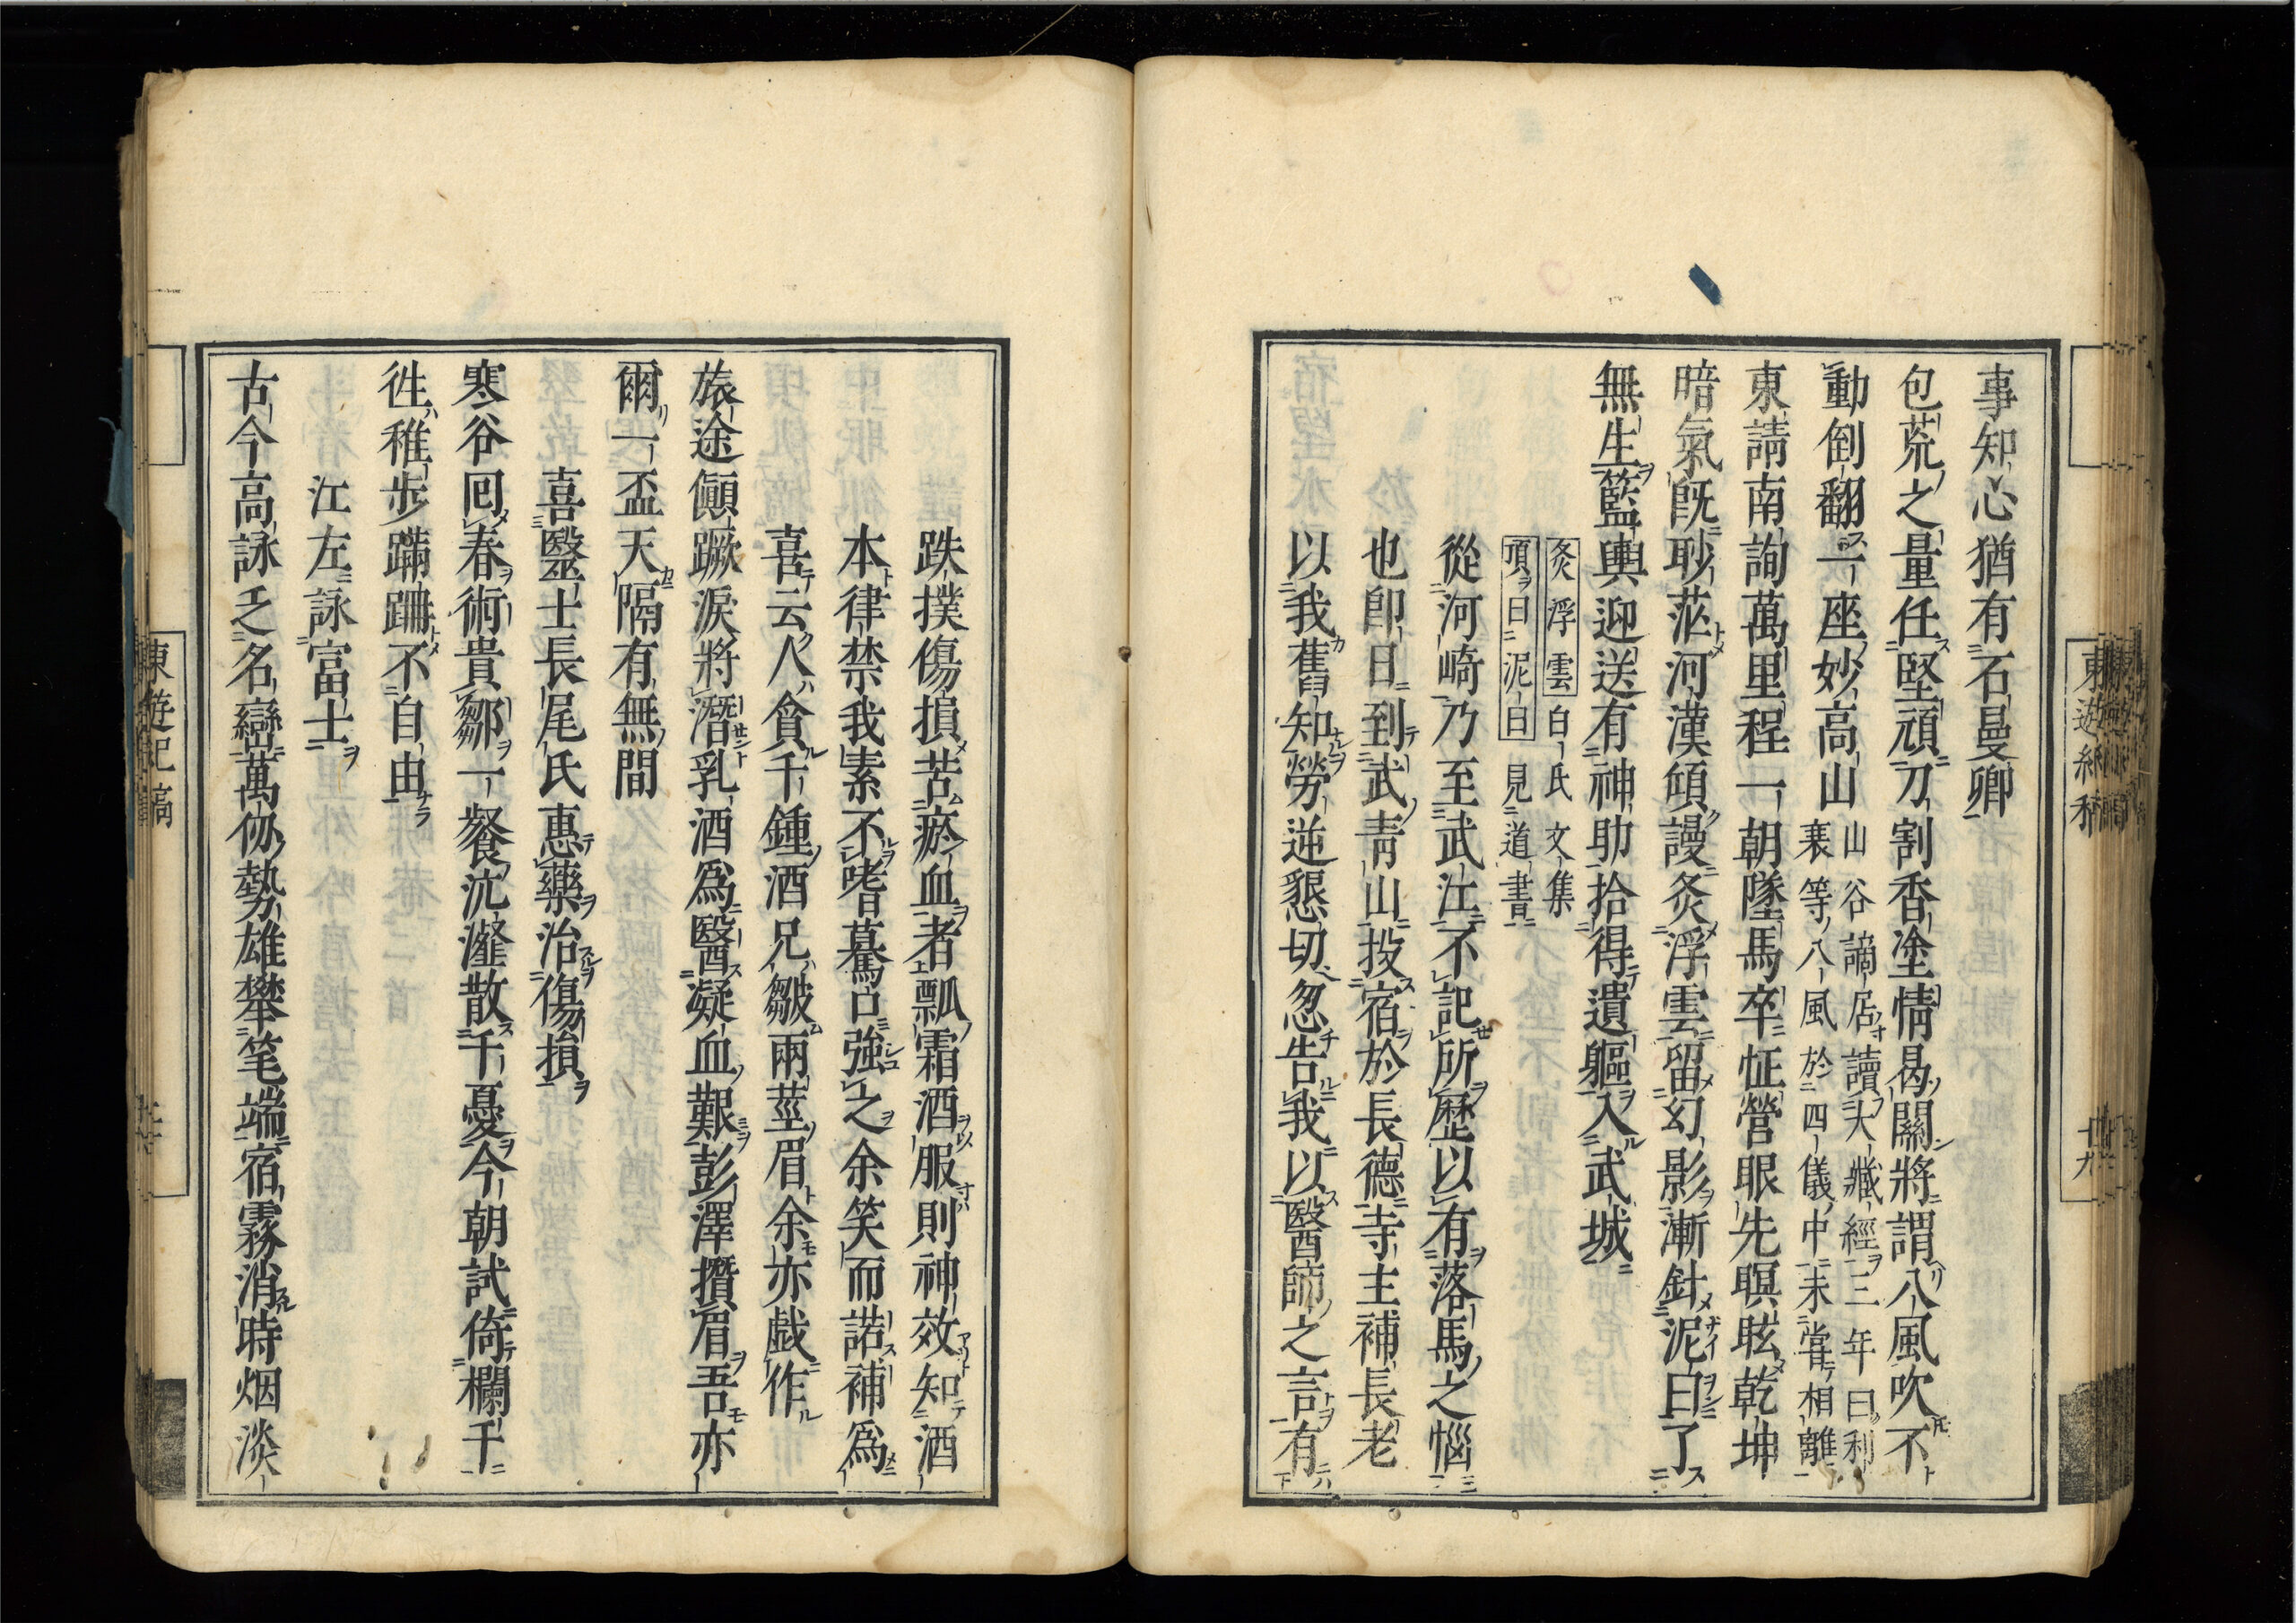 事知心猶有石曼卿
包荒之量任堅頑刀割香塗情曷關將謂八風吹不
動倒翻一座妙高山
山谷謫居讀大藏經三年曰利
衰等八風於四儀中未嘗相離
東請南詢萬里程一朝墜馬卒怔營眼先暝眩乾坤
暗氣既耿茫河漢傾謾灸浮雲留幻影漸針泥日了
無生籃輿迎送有神助拾得遺軀入武城
灸浮雲白氏文集
頂日泥日見道書
從河崎乃至武江不記所歷以有落馬之惱
也卽日到武靑山投宿於長德寺主補長老
以我舊知勞逆懇切忽告我以醫師之言有
跌撲傷損苦瘀血者瓢霜酒服則神效知酒
本律禁我素不嗜驀占強之余笑而諾補爲
喜云人貪千鍾酒兄皺兩莖眉余亦戲作
旅途顚蹶淚將潛乳酒爲醫凝血艱彭澤攢眉吾亦
爾一盃天隔有無間
喜醫士長尾氏惠藥治傷損
寒谷回春術貴鄒一餐沆瀣散千憂今朝試倚欄干
徃稚步蹣跚不自由
江左詠富士
古今高詠乏名巒萬仭勢雄攀笔端宿霧消時烟淡
東遊紀稿
十九
東遊紀稿